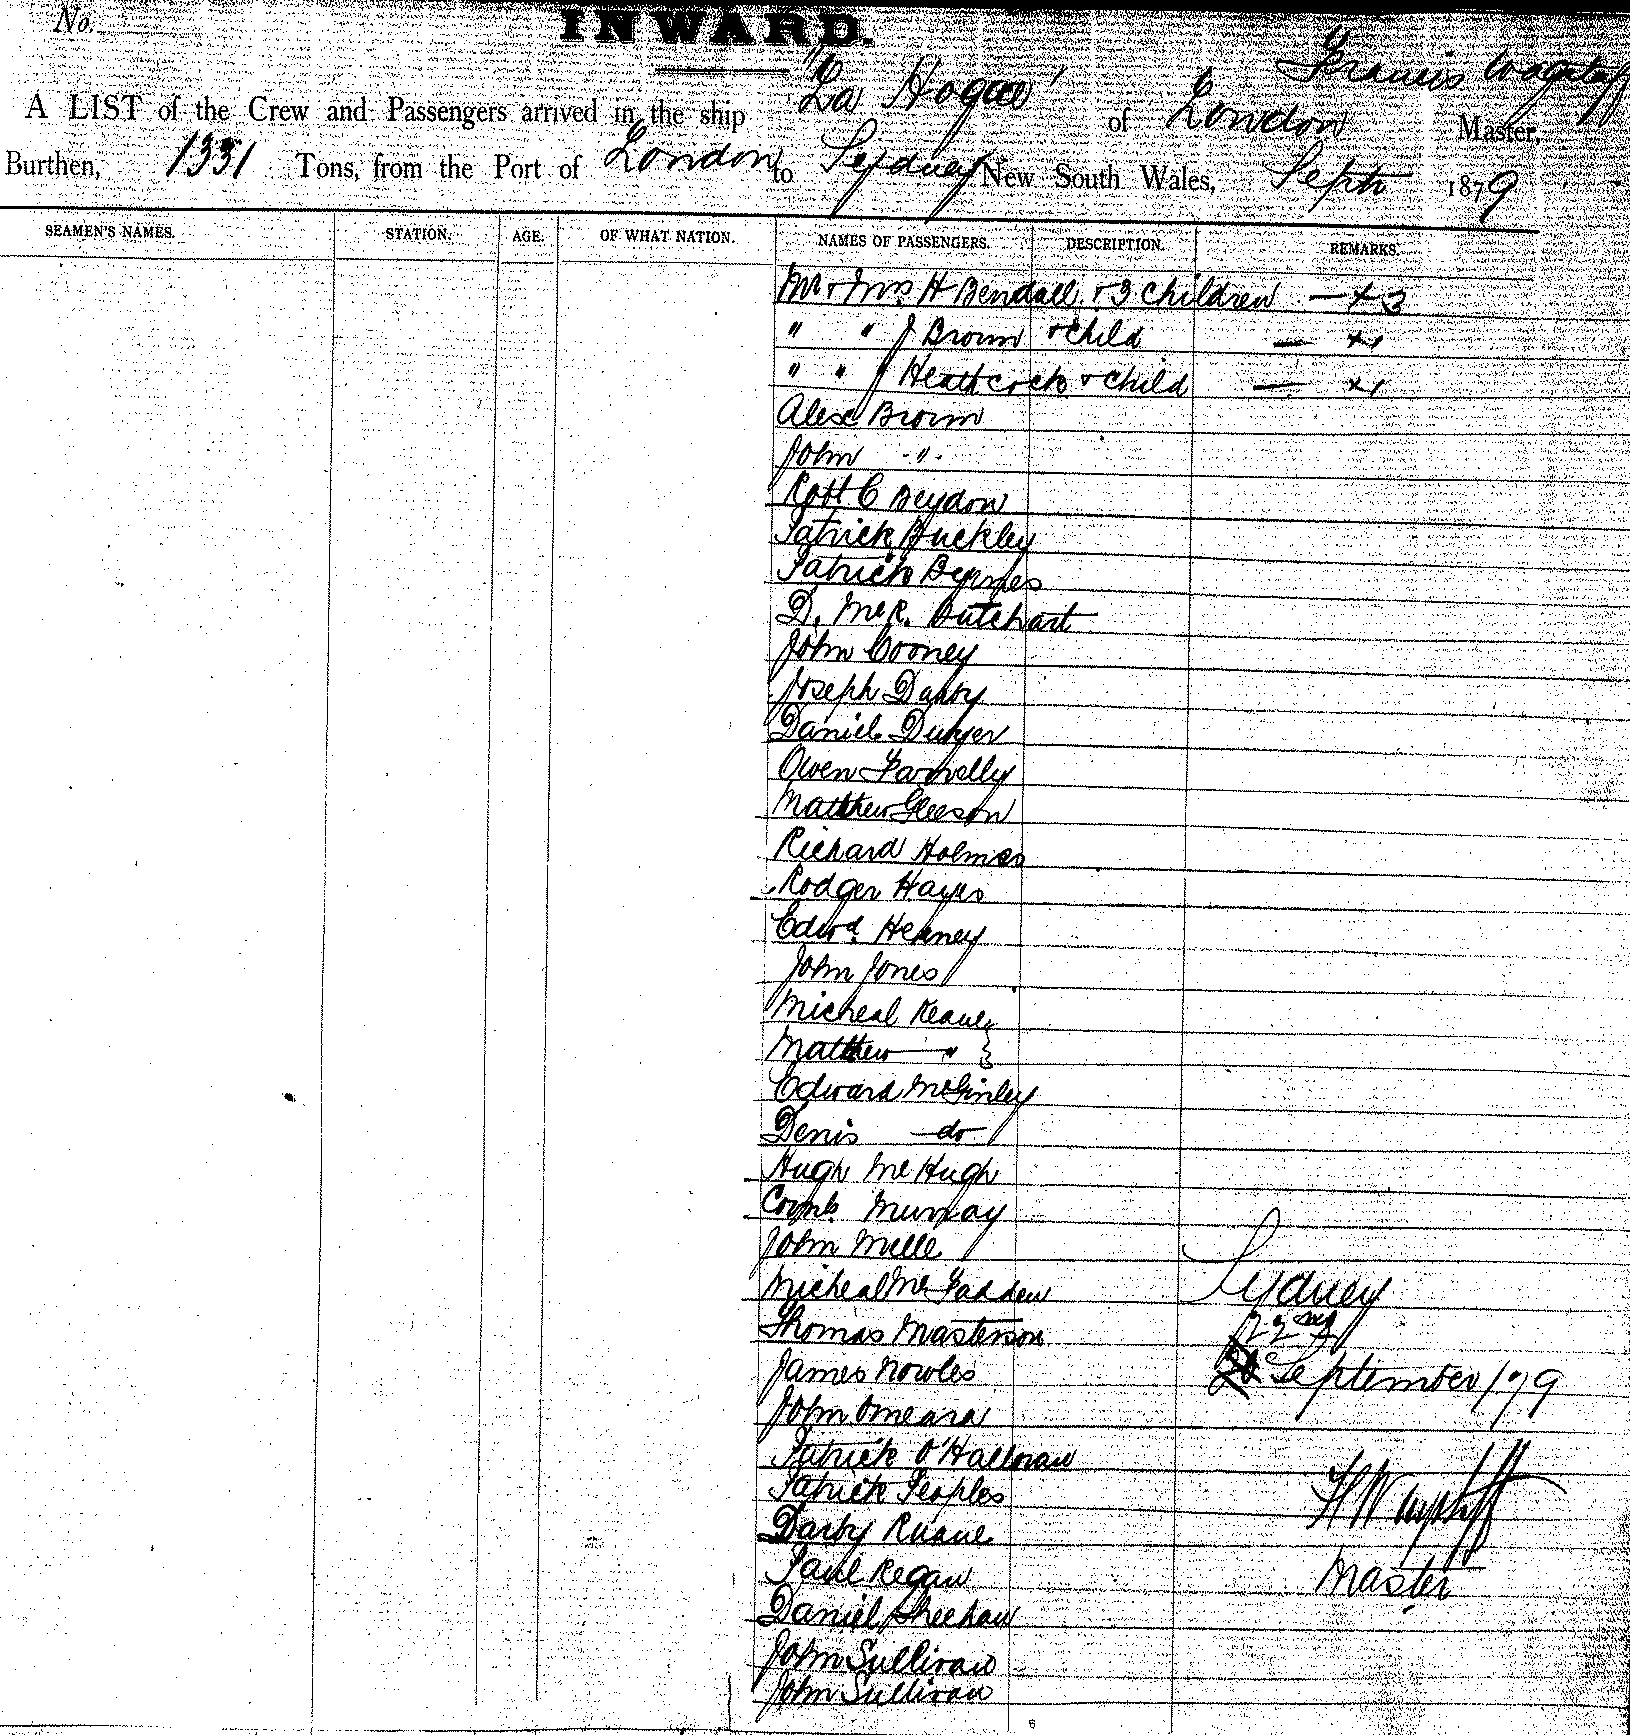 No.
INWARD.
A LIST of the Crew and Passengers arrived in the ship "La Hogue" of London Francis Wagstaff Master,
Burthen, 1331 Tons, from the Port of London to Sydney New South Wales, Septr 1879
SEAMEN'S NAMES. STATION. AGE. OF WHAT NATION. NAMES OF PASSENGERS. DESCRIPTION. REMARKS.
Mr & Mrs H Bendall & 3 children — x 3
" " J Brown & child — x 1
" " J Heathcock & child — x 1
Alex Brown
John "
Robt C Beydon
Patrick Buckley
Patrick Byrnes
D. McR. Butchart
John Cooney
Joseph Darby
Daniel Dwyer
Owen Farrelly
Matthew Gleeson
Richard Holmes
Rodger Hayes
Edwd Henney
John Jones
Micheal Keane
Matthew "
Edward McGinley
Denis do
Hugh McHugh
Murray
John Mille
Micheal McFadden
Thomas Masterson
James Nowles
John Omeara
Patrick O'Halloran
Patrick Peoples
Darby Ruane
Paul Regan
Daniel Sheehan
John Sullivan
John Sullivan
Sydney
22nd
September /79
Master